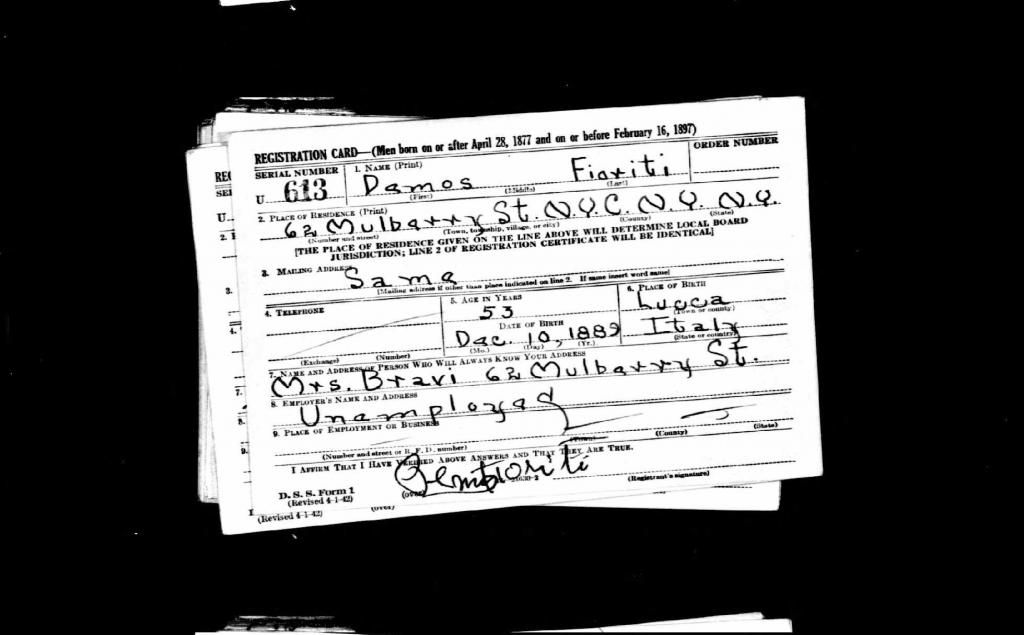 REG
REGISTRATION CARD—(Men born on or after April 28, 1877 and on or before February 16, 1897)
SERIAL NUMBER 1. NAME (Print) ORDER NUMBER
U 613 Damos Fioriti
(First) (Middle) (Last)
2. PLACE OF RESIDENCE (Print)
62 Mulbarry St. N.Y.C. N.Y. N.Y.
(Number and street) (Town, township, village, or city) (County) (State)
[THE PLACE OF RESIDENCE GIVEN ON THE LINE ABOVE WILL DETERMINE LOCAL BOARD
JURISDICTION; LINE 2 OF REGISTRATION CERTIFICATE WILL BE IDENTICAL]
3. MAILING ADDRESS
Same
[Mailing address if other than place indicated on line 2. If same insert word same]
4. TELEPHONE 5. AGE IN YEARS 6. PLACE OF BIRTH
53 Lucca
(Town or county)
DATE OF BIRTH
Dec. 10, 1889 Italy
(Exchange) (Number) (Mo.) (Day) (Yr.) (State or country)
7. NAME AND ADDRESS OF PERSON WHO WILL ALWAYS KNOW YOUR ADDRESS
Mrs. Bravi 62 Mulbarry St.
8. EMPLOYER'S NAME AND ADDRESS
Unemployed
9. PLACE OF EMPLOYMENT OR BUSINESS
(Number and street or R. F. D. number) (Town) (County) (State)
I AFFIRM THAT I HAVE VERIFIED ABOVE ANSWERS AND THAT THEY ARE TRUE.
D. S. S. Form 1
(Revised 4-1-42) (over) (Registrant's signature)
(Revised 4-1-42) (over)